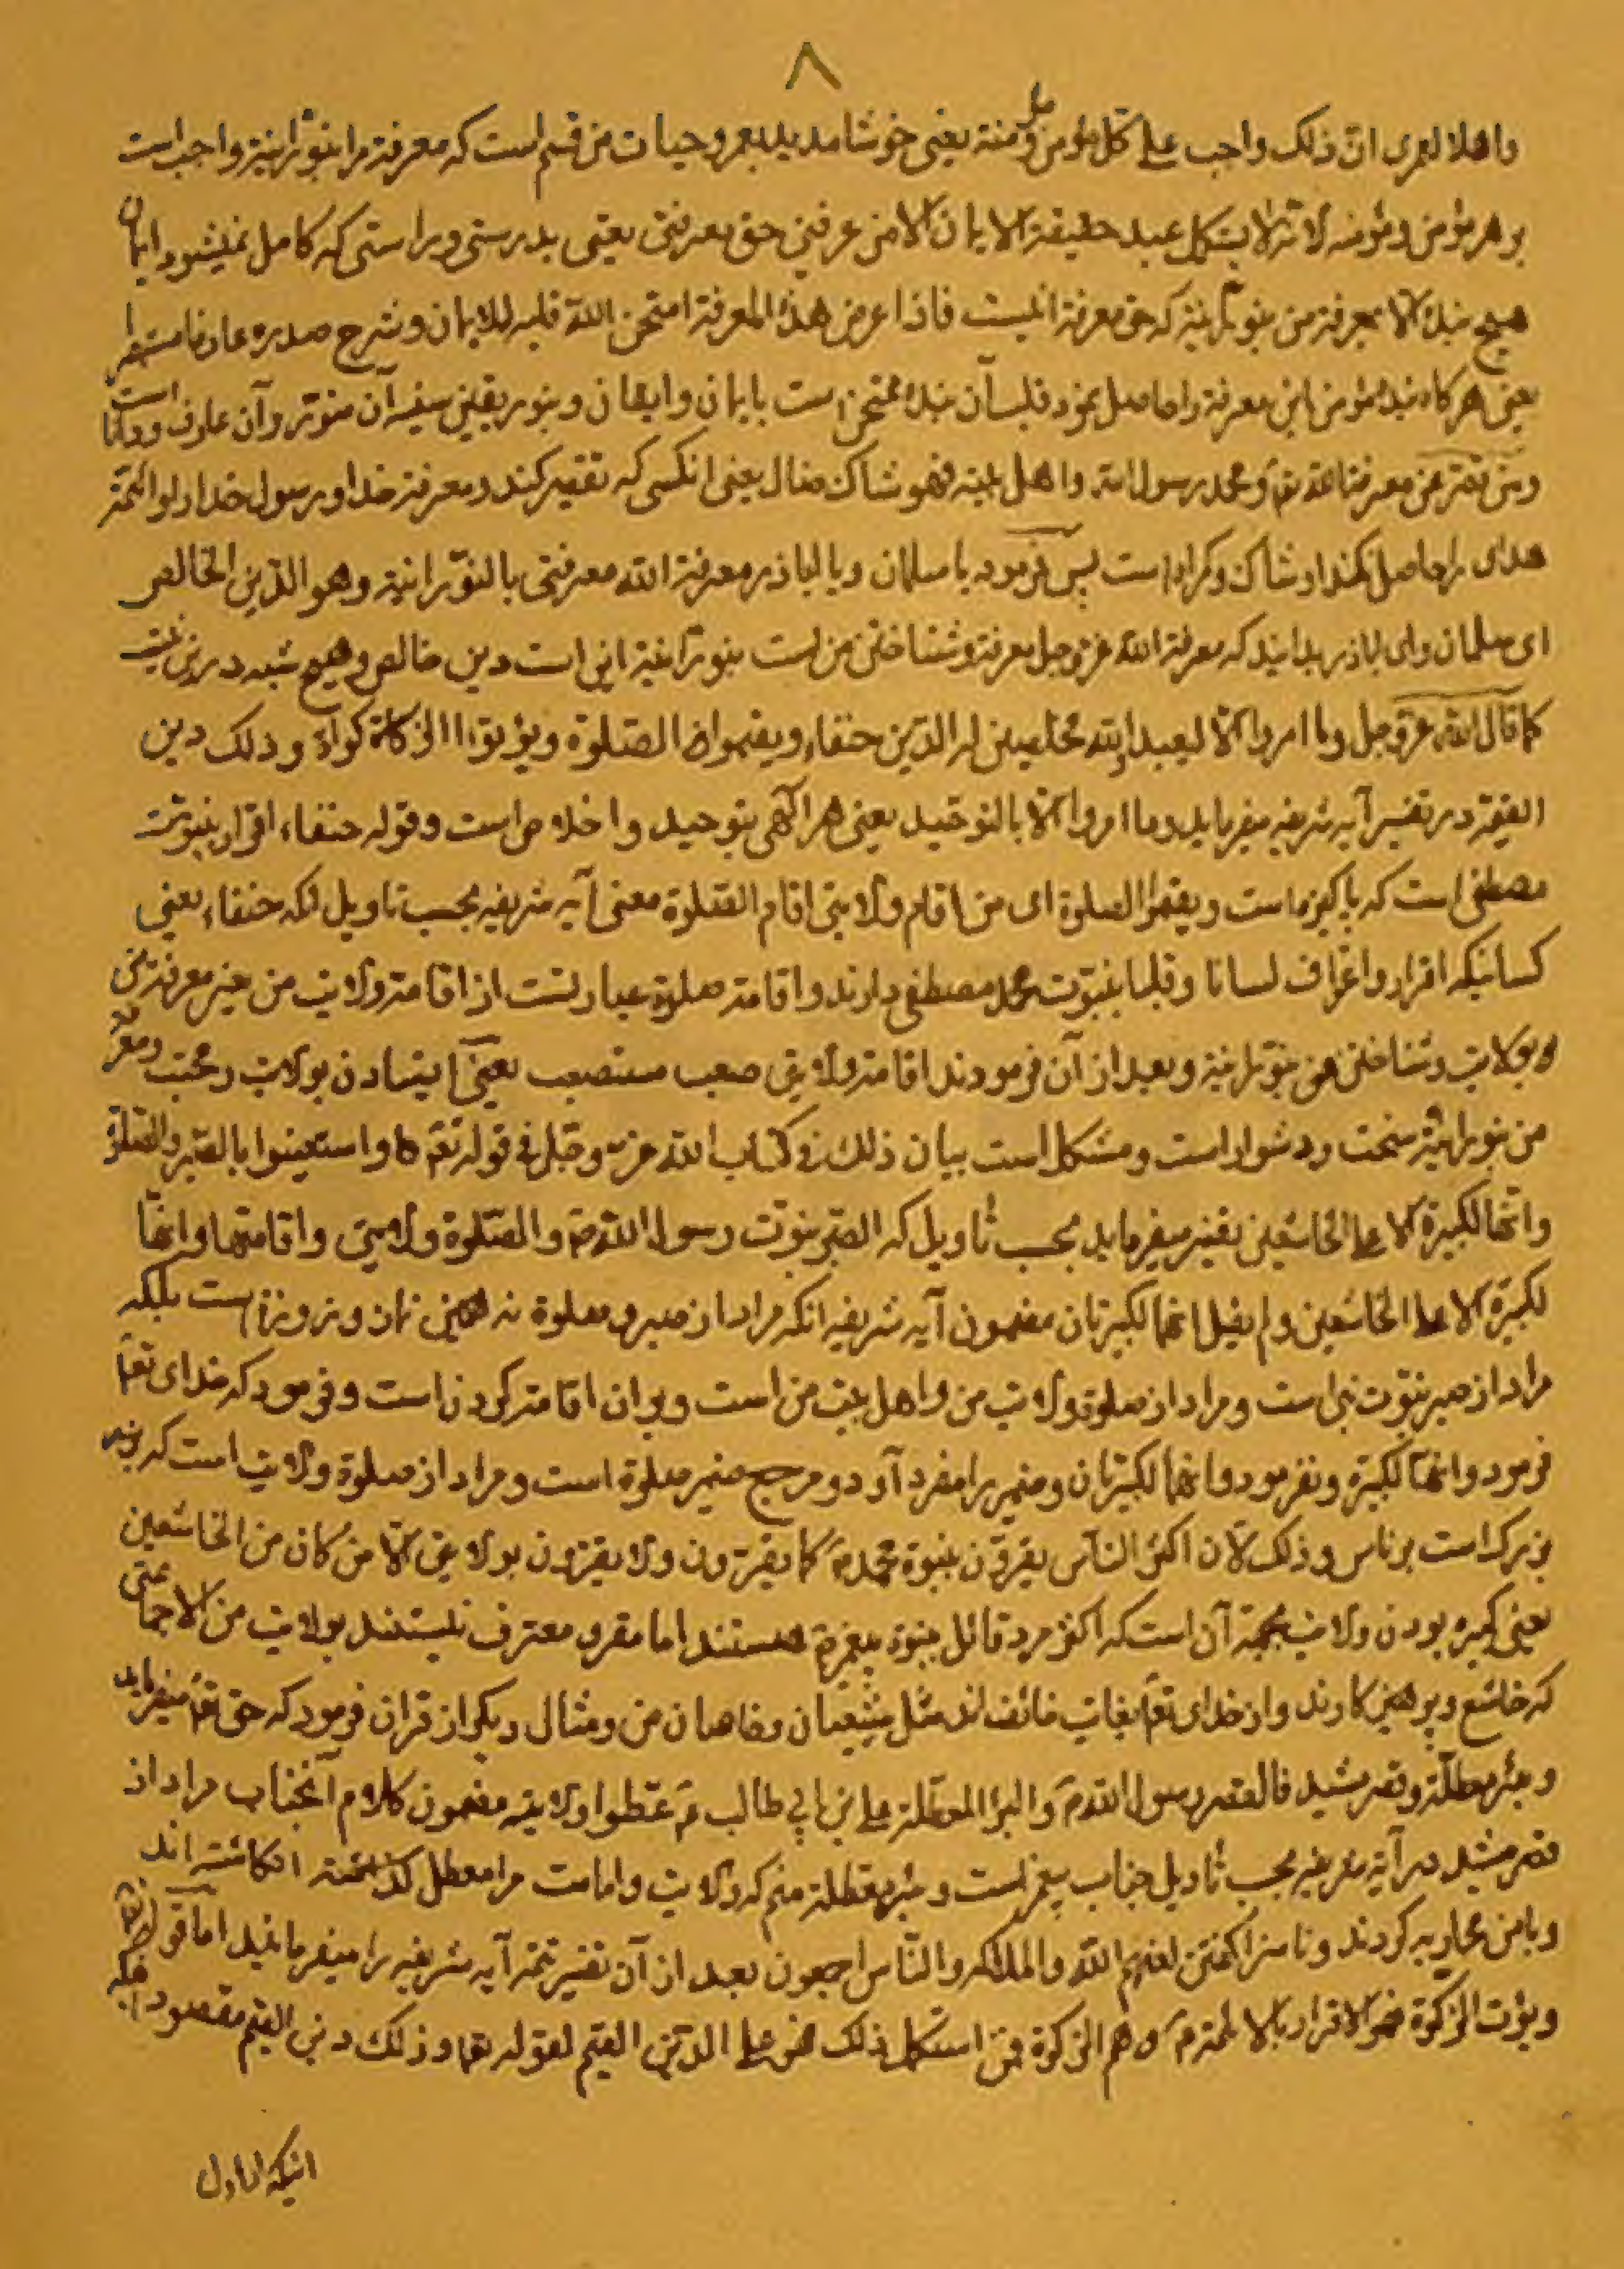 ٨
واهلا لعمری انّ ذلک واجب علی کل مؤمن و مؤمنة یعنی خوشامدید بعمر و حیات من قسم است که معرفة مرا بنورانیة واجب است
بر هر مؤمن و مؤمنه لانّه لا یستکمل عبد حقیقة الایمان الا من عرفنی حق معرفتی یعنی بدرستی و راستی که کامل نمیشود ایمان
هیچ بندۀ الا بمعرفة من بنورانیة که حق معرفة انیست فاذا عرض هذا المعرفة امتحن الله قلبه للایمان و شرح صدره عارفا مستبصرا
یعنی هر کاه بندۀ مؤمن این معرفة را حاصل نمود قلب آن بندۀ ممتحن است بایمان و ایقان و بنور یقین سینه آن منور و آن عارف و دانا است
و من قصر عن معرفة الله تعم و محمد رسول الله و اهل بیته فهو شاک ضال یعنی انکسی که تقصیر کند در معرفة خدا و رسول خدا و ائمّة
هدای را حاصل نکند او شاک و کمراه است پس فرموده یا سلمان و یا اباذر معرفة الله معرفتی بالنورانیة و هو الدّین الخالص
ای سلمان و ای اباذر بدانید که معرفة الله عز و جل معرفة و شناختن من است بنورانیة این است دین خالص و هیچ شبهه در این نیست
کما قال الله عز و جل و ما امروا الّا لیعبدوا الله مخلصین له الدّین حنفاء و یقیموا الصّلوة و یؤتوا الزکوة و ذلک دین
القیمة در تفسیر آیه شریفه میفرماید و ما امروا الّا بالتوحید یعنی هر آکهی بتوحید و اخلاص است و قوله حنفاء اقرار بنبوت
مصطفی است که پاکیزه است و یقیموا الصلوة ای من اقام ولایتی اقام الصّلوة معنی آیه شریفه بحسب تاویل انکه حنفاء یعنی
کسانیکه اقرار و اعتراف لسانا و قلبا بنبوت محمد مصطفی دارند و اقامة صلوة عبارتست از اقامة ولایت من یعنی معرفة من
بولایت و شناختن من بنورانیة و بعد از آن فرمودند اقامة ولایتی صعب مستصعب یعنی ایستادن بولایت و محبت و معرفة
من بنورانیّة سخت و دشوار است و مشکل است بیان ذلک فی کتاب الله عز و جل فی قوله تعم و استعینوا بالصّبر و الصّلوة
و انّها لکبیرة الا علی الخاشعین تفسیر میفرماید بحسب تاویل که الصّبر نبوّت رسول الله ص و الصّلوة ولایتی و اقامتها و انّها
لکبیرة الا علی الخاشعین و لم یقل انهما لکبیرتان مضمون آیه شریفه انکه مراد از صبر و صلوة نه همین نماز و روزه است بلکه
مراد از صبر نبوّت نبی است و مراد از صلوة ولایت من و اهل بیت من است و بر ان اقامة کردن است و فرمود که خدای تعم
فرمود و انّها لکبیرة و نفرمود و انهما لکبیرتان و ضمیر را مفرد آورد و مرجع ضمیر صلوة است و مراد از صلوة ولایت است که
بزرک است بر ناس و ذلک لان اکثر الناس یقرون بنبوة محمد ص کما یقرون و لا یقرون بولایتی الّا من کان من الخاشعین
یعنی کبیره بودن ولایت بجهة آن است که اکثر مرد قائل بنبوة پیغمر هستند اما مقر و معترف نیستند بولایت من الا جماعتی
که خاشع و پرهیزکارند و از خدای تعم بغایت خائف اند مثل شیعیان و خاصان من و مثال دیکر از قران فرمود که حق تعم میفرماید
و بئر معطّلة و قصر مشید فالقصر رسول الله ص و البئر المعطّلة علی بن ابی طالب ع عطّلوا ولایته مضمون کلام آنجناب مراد از
قصر مشید در آیه شریفه بحسب تاویل جناب پیغمر است و بئر معطلة منم که ولایت و امامت مرا معطل کذاشتند انکاشته اند
و با من محاربه کردند و ناسزا کفتن لعنهم الله و الملائکه و النّاس اجمعون بعد از آن تفسیر تتمه آیه شریفه را میفرمایند اما قوله تعم
و یؤت الزکوة فهو الاقرار بالائمة ع و هم الزکوة فمن استکمل ذلک فهو علی الدّین القیم لقوله تعم و ذلک دین القیم مقصود انکه